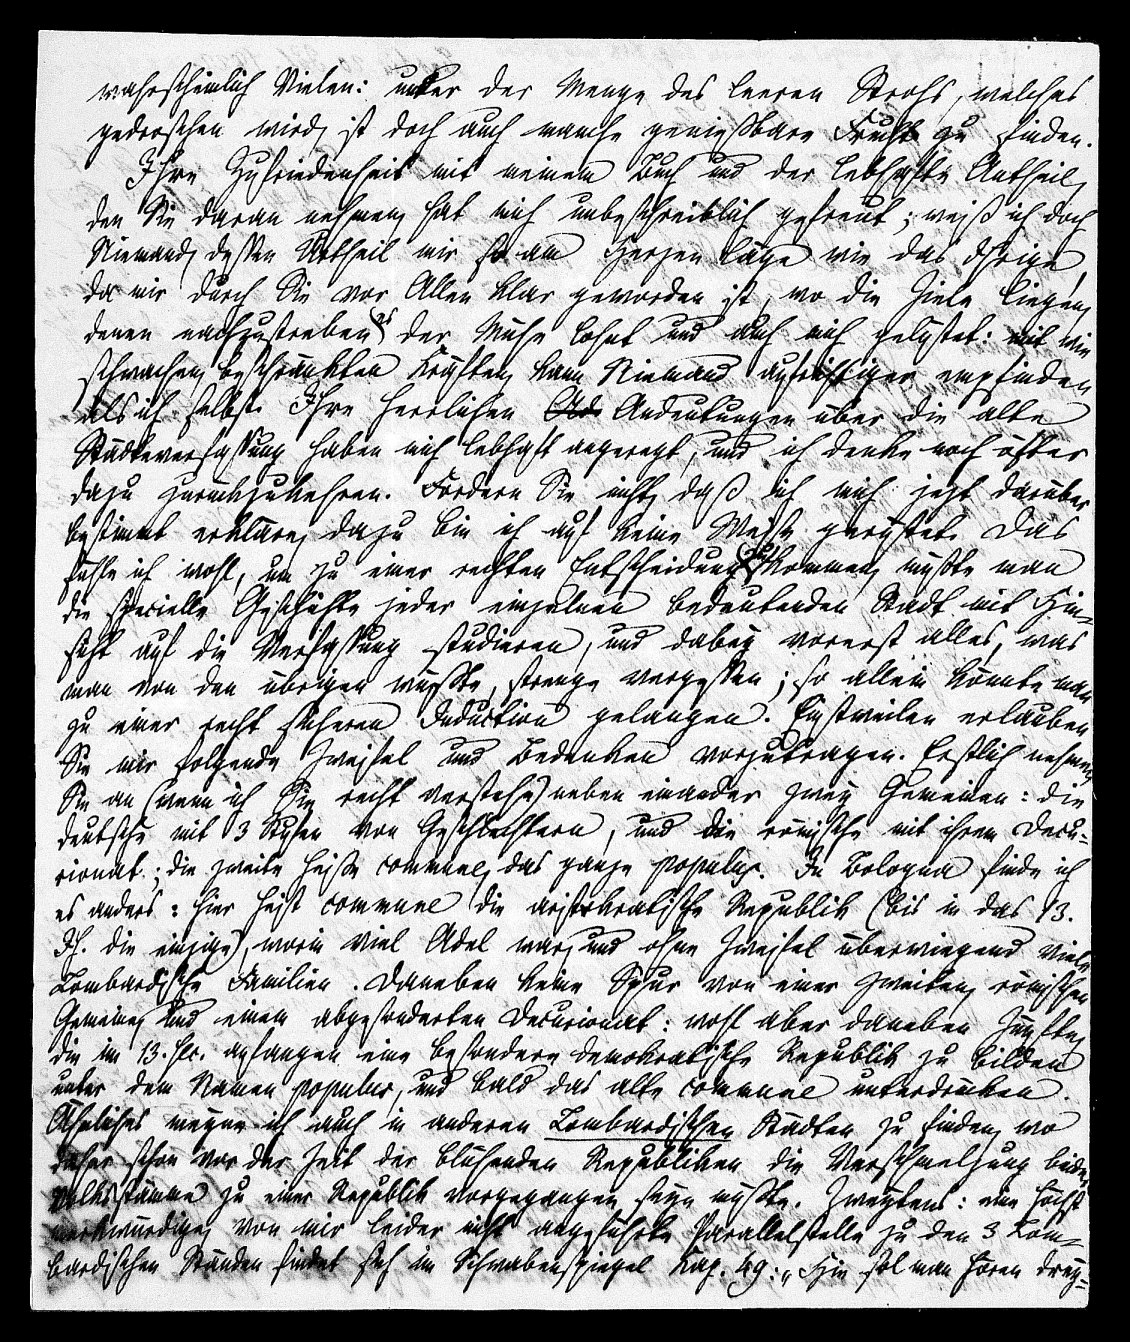 wahrscheinlich Vielen: unter der Menge des leeren Strohs, welches
gedroschen wird, ist doch auch manche genießbare Frucht zu finden.
Ihre Zufriedenheit mit meinem Buch und der lebhafte Antheil,
den Sie daran nehmen, hat mich unbeschreiblich gefreut; weiß ich doch
Niemand, dessen Urtheil mir so am Herzen läge wie das Ihrige,
da mir durch Sie vor Allen klar geworden ist, wo die Ziele liegen,
denen nachzustreben es der Mühe lohnt und auch mich gelüstet: mit wie
schwachen, beschränkten Kräften, kann Niemand aufrichtiger empfinden
als ich selbst. Ihre herrlichen Andeutungen über die alte
Städteverfassung haben mich lebhaft angeregt, und ich denke noch öfter
dazu zurückzukehren. Fordern Sie nicht, daß ich mich jezt darüber
bestimmt erkläre, dazu bin ich auf keine Weise gerüstet. Das
fühle ich wohl, um zu einer rechten Entscheidung zu kommen, müßte man
die specielle Geschichte jeder einzelnen bedeutenden Stadt mit Hin-
sicht auf die Verfassung studieren, und dabey vorerst alles, was
man von den übrigen wußte, strenge vergessen; so allein könnte man
zu einer recht sicheren Induction gelangen. Einstweilen erlauben
Sie mir folgende Zweifel und Bedenken vorzutragen. Erstlich nehmen
Sie an (wenn ich Sie recht verstehe) neben einander zwey Gemeinen: die
deutsche mit 3 Stufen von Geschlechtern, und die römische mit ihrem Decu-
rionat; die zweite heiße commune, das ganze populus. In Bologna finde ich
es anders: hier heist commune die aristokratische Republik (bis in das 13.
Jh. die einzige), worin viel Adel war, und ohne Zweifel überwiegend viele
Lombardische Familien. Daneben keine Spur von einer zweiten, römischen
Gemeine, und einem abgesonderten Decurionat: wohl aber daneben Zünfte,
die im 13. Sec. anfangen eine besondere demokratische Republik zu bilden
unter dem Namen populus, und bald das alte commune unterdrücken.
Ähnliches meyne ich auch in anderen Lombardischen Städten zu finden, wo
daher schon vor der Zeit der blühenden Republiken die Verschmelzung beider
Volksstämme zu einer Republik vorgegangen seyn müßte. Zweytens: eine höchst
merkwürdige, von mir leider nicht angeführte Parallelstelle zu den 3 Lom-
bardischen Ständen findet sich im Schwabenspiegel Kap. 49: „Hie sol man hören drey-